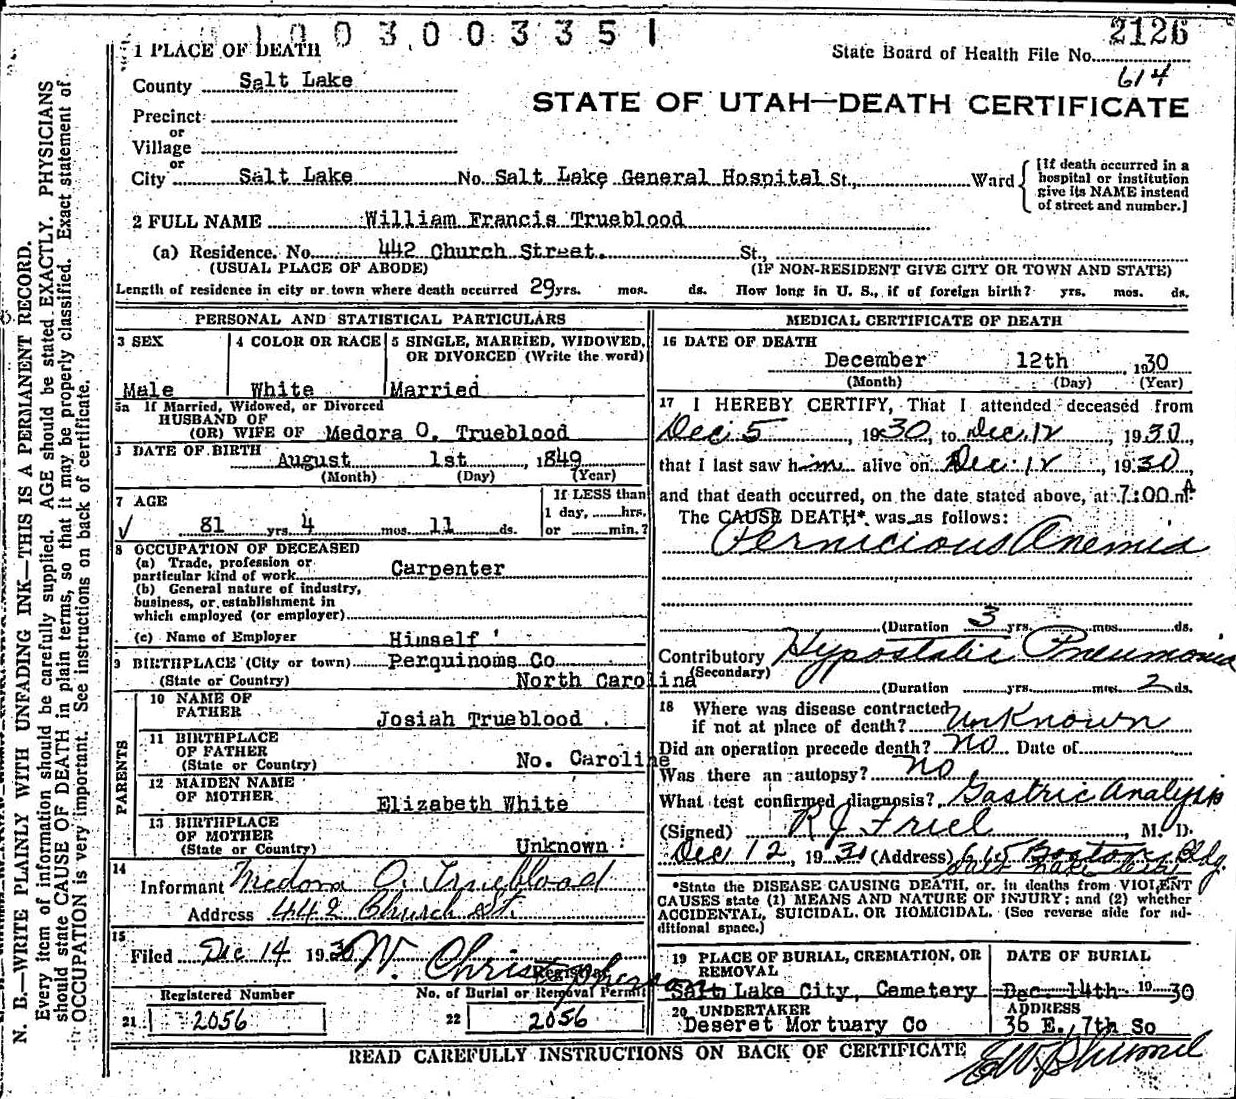 1003003351
2126
1 PLACE OF DEATH
State Board of Health File No.
614
County Salt Lake
STATE OF UTAH—DEATH CERTIFICATE
Precinct
or
Village
or
City Salt Lake No. Salt Lake General Hospital St., Ward
[If death occurred in a hospital or institution give its NAME instead of street and number.]
2 FULL NAME William Francis Trueblood
(a) Residence. No. 442 Church Street. St.,
(USUAL PLACE OF ABODE) (IF NON-RESIDENT GIVE CITY OR TOWN AND STATE)
Length of residence in city or town where death occurred 29 yrs. mos. ds. How long in U. S., if of foreign birth? yrs. mos. ds.
PERSONAL AND STATISTICAL PARTICULARS
3 SEX
Male
4 COLOR OR RACE
White
5 SINGLE, MARRIED, WIDOWED,
OR DIVORCED (Write the word)
Married
5a If Married, Widowed, or Divorced
HUSBAND OF
(OR) WIFE OF Medora O. Trueblood
DATE OF BIRTH
August 1st, 1849
(Month) (Day) (Year)
7 AGE
81 yrs. 4 mos. 11 ds.
If LESS than
1 day, hrs.
or min.?
8 OCCUPATION OF DECEASED
(a) Trade, profession or
particular kind of work Carpenter
(b) General nature of industry,
business, or establishment in
which employed (or employer)
(c) Name of Employer Himself
9 BIRTHPLACE (City or town) Perquinoms Co
(State or Country) North Carolina
PARENTS
10 NAME OF
FATHER Josiah Trueblood
11 BIRTHPLACE
OF FATHER
(State or Country) No. Caroline
12 MAIDEN NAME
OF MOTHER Elizabeth White
13 BIRTHPLACE
OF MOTHER
(State or Country) Unknown
14
Informant Medora O. Trueblood
Address 442 Church St.
15
Filed Dec 14 1930 W. Christopherson
Registrar
Registered Number
21 2056
No. of Burial or Removal Permit
22 2056
MEDICAL CERTIFICATE OF DEATH
16 DATE OF DEATH
December 12th, 1930
(Month) (Day) (Year)
17 I HEREBY CERTIFY, That I attended deceased from
Dec 5, 1930, to Dec. 12, 1930,
that I last saw him alive on Dec. 12, 1930,
and that death occurred, on the date stated above, at 7:00 A m.
The CAUSE DEATH* was as follows:
Pernicious Anemia
(Duration 3 yrs. mos. ds.
Contributory Hypostatic Pneumonia
(Secondary)
(Duration yrs. mos. 2 ds.
18 Where was disease contracted
if not at place of death? Unknown
Did an operation precede death? no Date of
Was there an autopsy? no
What test confirmed diagnosis? Gastric Analysis
(Signed) R J Friel, M. D.
Dec 12, 1930 (Address) 615 Boston Bldg.
Salt Lake City
*State the DISEASE CAUSING DEATH, or, in deaths from VIOLENT
CAUSES state (1) MEANS AND NATURE OF INJURY; and (2) whether
ACCIDENTAL, SUICIDAL, OR HOMICIDAL. (See reverse side for ad-
ditional space.)
19 PLACE OF BURIAL, CREMATION, OR
REMOVAL
Salt Lake City, Cemetery
DATE OF BURIAL
Dec. 14th 1930
20 UNDERTAKER
Deseret Mortuary Co
ADDRESS
36 E., 7th So
READ CAREFULLY INSTRUCTIONS ON BACK OF CERTIFICATE
N. B.—WRITE PLAINLY WITH UNFADING INK—THIS IS A PERMANENT RECORD.
Every item of information should be carefully supplied. AGE should be stated EXACTLY. PHYSICIANS
should state CAUSE OF DEATH in plain terms, so that it may be properly classified. Exact statement of
OCCUPATION is very important. See instructions on back of certificate.